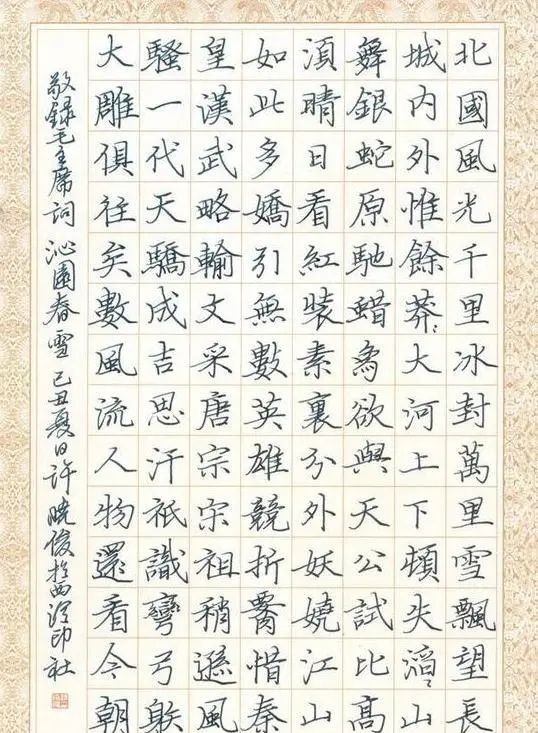 北國風光千里冰封萬里雪飄望長
城內外惟餘莽〻大河上下頓失滔〻山
舞銀蛇原馳蜡象欲與天公試比高
須晴日看紅裝素裹分外妖嬈江山
如此多嬌引無數英雄競折腰惜秦
皇漢武略輸文采唐宗宋祖稍遜風
騷一代天驕成吉思汗祇識彎弓射
大雕俱往矣數風流人物還看今朝
敬録毛主席詞 沁園春雪 己丑夏日許曉俊於西泠印社